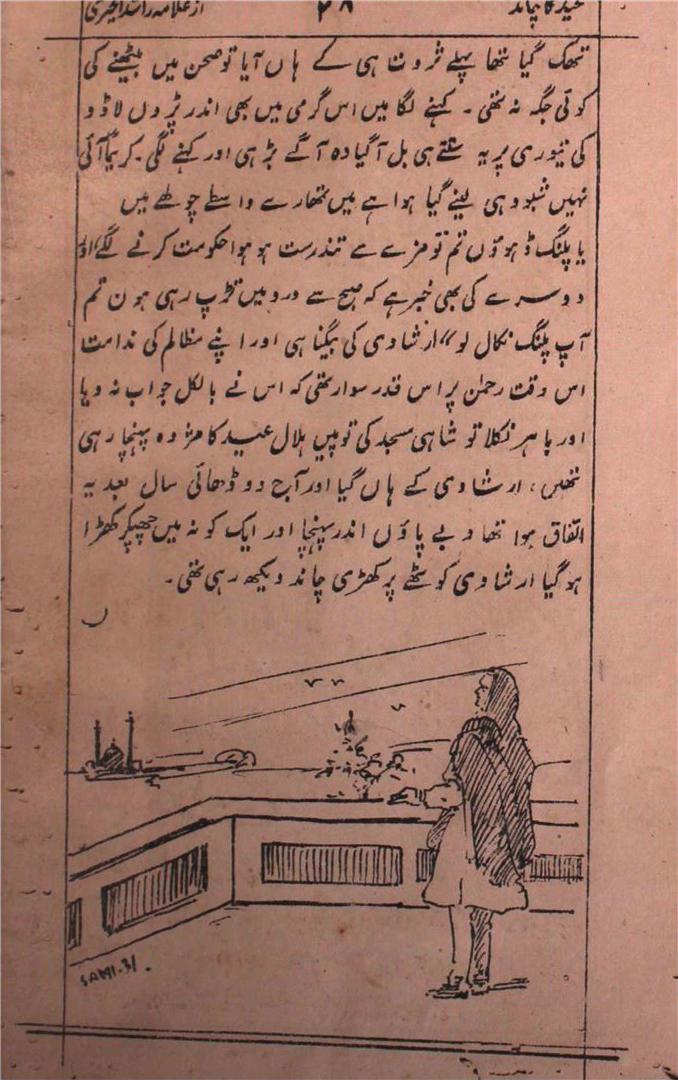 عید کا چاند ۲۸ از علامہ راشد الخیری
تھک گیا تھا پہلے ثروت ہی کے ہاں آیا تو صحن میں بیٹھنے کی
کوئی جگہ نہ تھی ۔ کہنے لگا میں اس گرمی میں بھی اندر پڑوں لاڈو
کی تیوری پر یہ سنتے ہی بل آگیا وہ آگے بڑھی اور کہنے لگی ۔ کریما آئی
نہیں شبو دہی لینے گیا ہوا ہے میں تمھارے واسطے چولھے میں
یا پلنگ ڈھوؤں تم تو مزے سے تندرست ہو ہوا حکومت کرنے لگے
دوسرے کی بھی خبر ہے کہ صبح سے درد میں تڑپ رہی ہون تم
آپ پلنگ نکال لو‘‘ ارشادی کی بیگنا ہی اور اپنے مظالم کی ندامت
اس وقت رحمٰن پر اس قدر سوار تھی کہ اس نے بالکل جواب نہ دیا
اور باہر نکلا تو شاہی مسجد کی توپیں ہلال عید کا مژدہ پہنچا رہی
تھیں ، ارشادی کے ہاں گیا اور آج دو ڈھائی سال بعد یہ
اتفاق ہوا تھا دبے پاؤں اندر پہنچا اور ایک کونہ میں چھپکر کھڑا
ہو گیا ارشادی کوٹھے پر کھڑی چاند دیکھ رہی تھی ۔
SAMI-31.